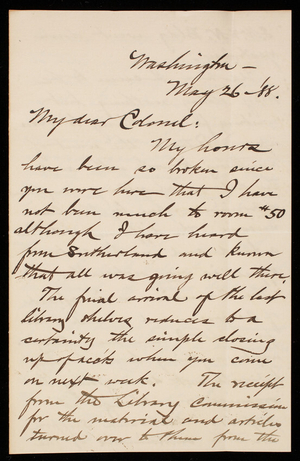 Washington –
May 26 – '88.
My dear Colonel:
My hours
have been so broken since
you were here that I have
not been much to room #50
although I have heard
from Sutherland and known
that all was going well there.
The final arrival of the last
library shelves reduces to a
certainty the simple closing
up of work when you come
on next week. The receipt
from the Library Commission
for the material and articles
turned over to them from the